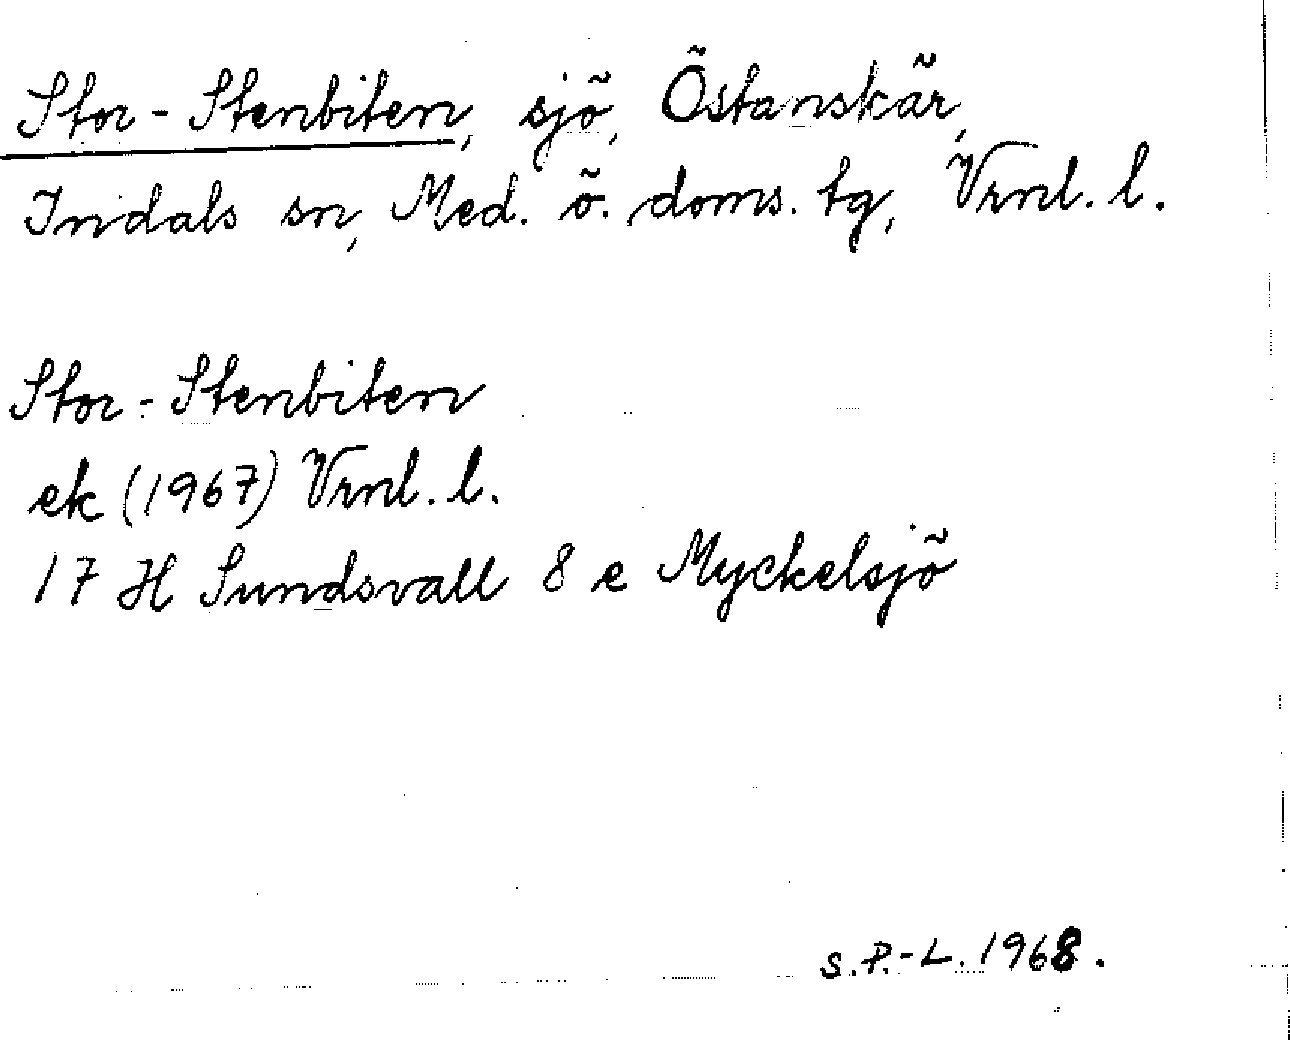 Stor-Stenbiten, sjö, Östanskär,
Indals sn, Med. ö. doms. tg, Vrnl. l.
Stor-Stenbiten
ek (1967) Vrnl. l.
17 H Sundsvall 8 e Myckelsjö
S.P.-L. 1968.